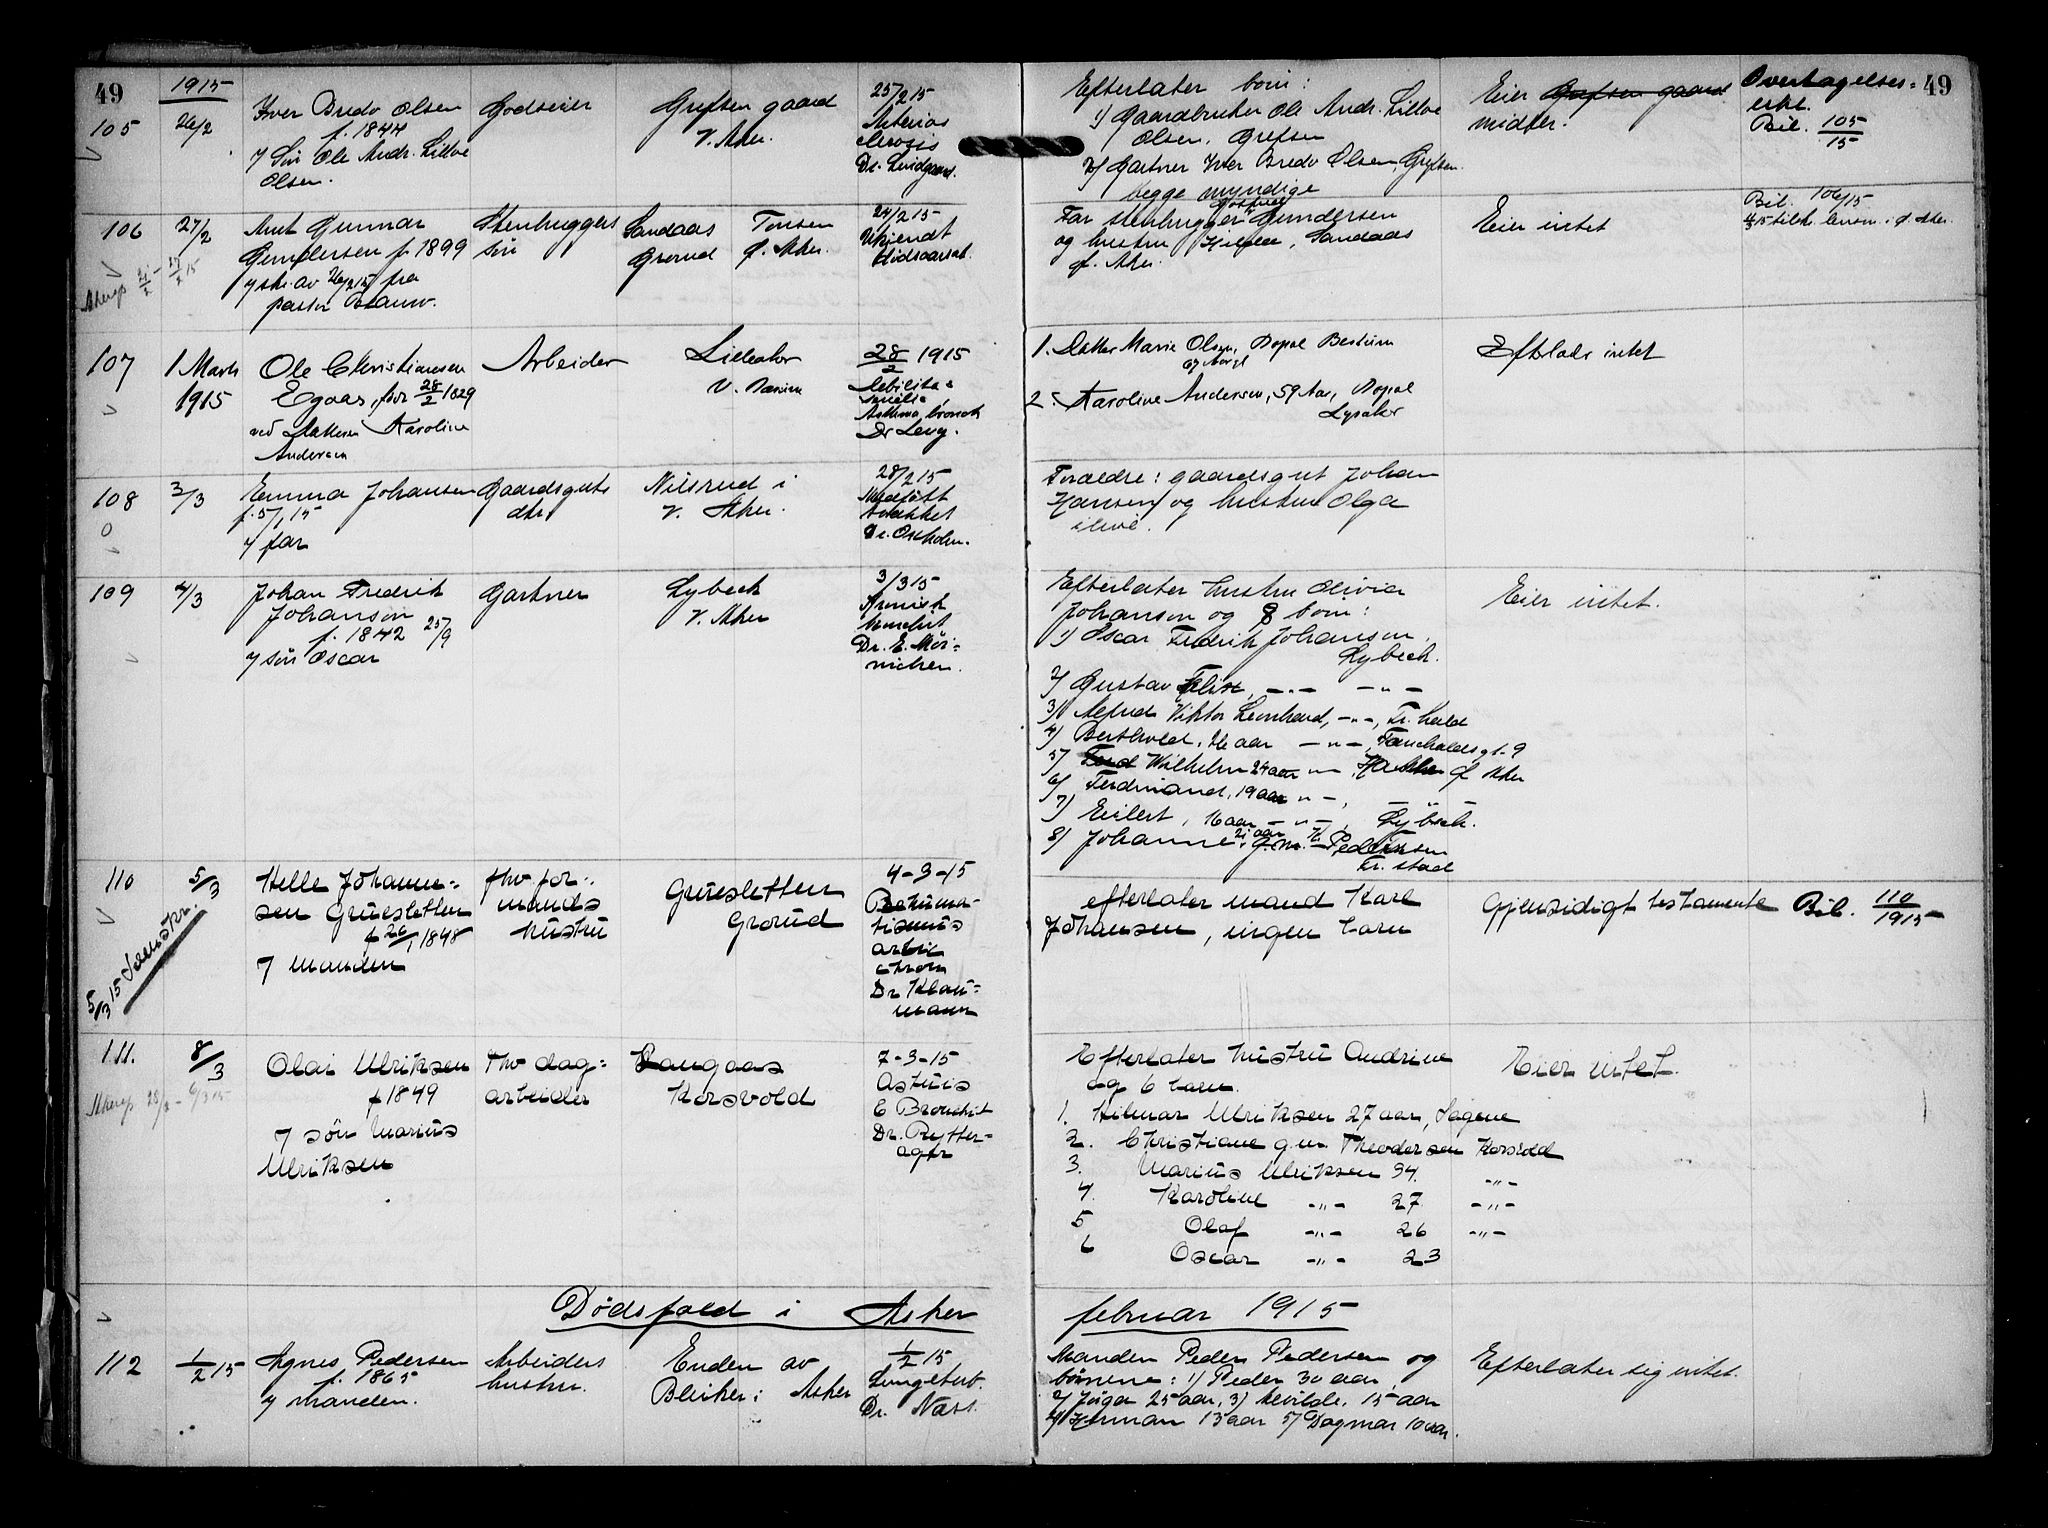 49
1915
105
26/2
Iver Bredo Olsen
f. 1844
y Søn Ole Andr. Lilloe
Olsen.
Godseier
Grefsen gaard
V. Aker.
25/2 15
Arterios
clerosis
Dr. Lindgaard.
Efterlater børn:
1) Gaardbruker Ole Andr. Lilloe
Olsen, Grefsen
2) Gartner Iver Bredo Olsen, Grefsen.
begge myndige
Eier Grefsen gaard
midler.
Overtagelses-
erkl.
Bil. 105/15
49
106
27/2
Arnt Gunnar
Gundersen f. 1899
y skr. av 26/2 15 fra
pastor
Stenhuggers
søn
Sandaas Tonsen
Grorud Ø. Aker.
24/2 15
Ukjendt
dødsaarsak.
Far stenhugger Gundersen
og hustru Hilda, Sandaas
Ø. Aker.
Eier intet
Bil. 106/15
107
1 Marts
1915
Ole Christiansen
Egaas, født 28/2 1829
ved datteren Karoline
Andersen
Arbeider
Lilleaker
V. Bærum
28/2 1915
Debilitas
senilis
Asthma, bronch
Dr Levy.
1. Datter Marie Olsen, Bopæl Bestum
2. Karoline Andersen, 59 Aar, Bopæl
Lysaker
Efterlod intet
108
3/3
Emma Johansen
f. 5/1 15
y far
Gaardsguts
dtr.
Nilsrud i
V. Aker.
28/2 15
Medfødt
svakhet
Dr. Oxholm.
Forældre: gaardsgut Johan
Hansen og hustru Olga
ilive.
109
4/3
Johan Fredrik
Johanson
f. 1842 25/9
y søn Oscar
Gartner
Lybeck
V. Aker
3/3 15
Kronisk
bronchit
Dr. E. Mør-
nichen.
Efterlater hustru Olivia
Johanson og 8 børn:
1) Oscar Fredrik Johanson,
Lybeck.
2) Gustav Felix, -"- -"-
3) Alfred Viktor Leonhard, -"-, Fr. hald
4) Berthold, 26 aar -"-, Fauchaldsgt. 9
5) Wilhelm 24 aar -"- Ø Aker
6) Ferdinand, 19 aar -"-,
7) Eilert, 16 aar -"-, Lybeck.
8) Johanne, 21 aar g.m. Pedersen
Fr. stad
Eier intet.
110
5/3
5/3 15
Helle Johanne-
sen Gruesletten
f 26/1 1848
y manden
fhv. for-
mands
hustru
Gruesletten
Grorud
4-3-15
Rehuma-
tismus
artic
chron
Dr Klau-
mann
efterlater mand Karl
Johansen, ingen barn
Gjensidigt testamente
Bil. 110/1915
111.
8/3
Olai Ulriksen
f 1849
y søn Marius
Ulriksen
Fhv dag-
arbeider
Langaas
Korsvold
7-3-15
Astmis
E Bronchit
Dr. Rytter-
ager
Efterlater hustru Andrine
og 6 barn.
1. Hilmar Ulriksen 27 aar, Sagene
2. Christiane g.m. Theodersen Korsvold
3. Marius Ulriksen 34. -"-
4. Karoline -"- 27 -"-
5 Olaf -"- 26 -"-
6 Oscar -"- 23
Eier intet.
Dødsfald i Asker februar 1915
112
1/2 15
Agnes Pedersen
f. 1865
y manden.
Arbeiders
hustru.
Enden av
Bleiker i Asker
1/2 15
Lungetub.
Dr. Næss.
Manden Peder Pedersen og
børnene: 1) Peder 30 aar,
2) Inga 25 aar, 3) Alvilde, 15 aar
4) Herman 13 aar 5) Dagmar 10 aar.
Efterlater sig intet.